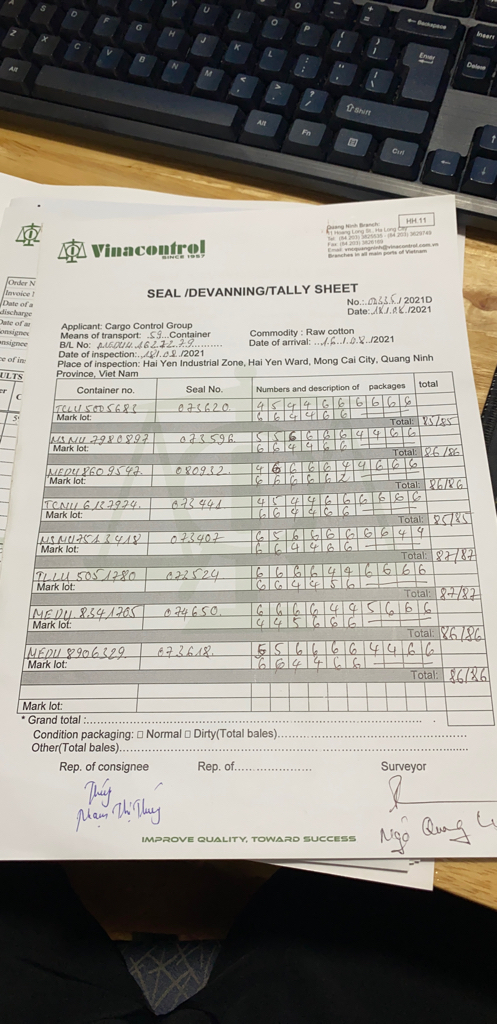 Quang Ninh Branch:
HH.11
Vinacontrol
SINCE 1957
Branches in all main ports of Vietnam
SEAL /DEVANNING/TALLY SHEET
No.: /2021D
Date: 18/.08./2021
Applicant: Cargo Control Group
Means of transport: .59...Container
Commodity : Raw cotton
B/L No:
Date of arrival: ..16../.0.8../2021
Date of inspection:..18/.08./2021
Place of inspection: Hai Yen Industrial Zone, Hai Yen Ward, Mong Cai City, Quang Ninh
Province, Viet Nam
Container no. Seal No. Numbers and description of packages total
TCLU 5005683 073620. 4 5 4 4 6 6 6 6 6 6
Mark lot: 6 6 4 4 6 6
Total: 85/85
073596. 5 5 6 6 6 6 4 4 6 6
Mark lot: 6 6 4 4 6 6
Total: 86/86
MEDU 8609597. 080932. 4 6 6 6 6 4 4 6 6 6
Mark lot: 6 6 6 6 6 2
Total: 86/86
TCNU 6137974. 073441 4 5 4 4 6 6 6 6 6 6
Mark lot: 6 6 4 4 6 6
Total: 85/85
073407 6 5 6 6 6 6 6 6 4 4
Mark lot: 6 6 4 4 6 6
Total: 87/87
TLLU 5051780 073524 6 6 6 6 4 4 6 6 6 6
Mark lot: 6 6 4 4 5 6
Total: 87/87
MEDU 8341765 074650. 6 6 6 6 4 4 5 6 6 6
Mark lot: 4 4 5 6 6 6
Total: 86/86
MEDU 8906329. 073618. 6 5 6 6 6 6 4 4 6 6
Mark lot: 6 6 4 4 6 6
Total: 86/86
Mark lot:
* Grand total :
Condition packaging: □ Normal □ Dirty(Total bales)
Other(Total bales)
Rep. of consignee Rep. of Surveyor
Thúy
Phạm Thị Thúy
Ngô Quang
IMPROVE QUALITY, TOWARD SUCCESS
Backspace
Insert
Enter
Delete
Shift
Alt
Alt
Fn
Ctrl